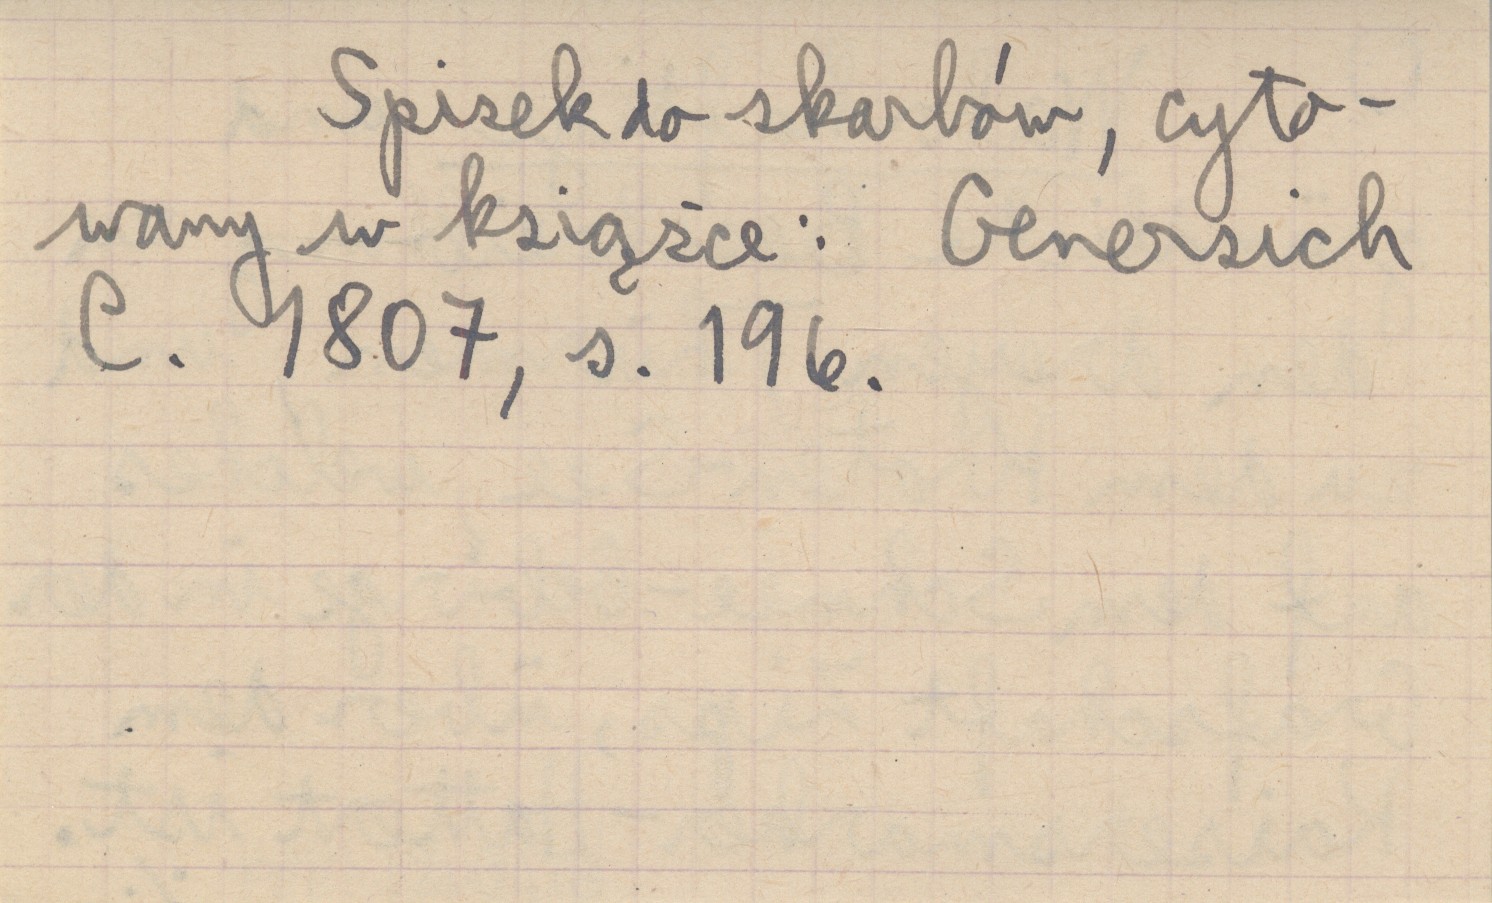 Spisek do skarbów, cyto-
wany w książce: Genersich
C. 1807, s. 196.